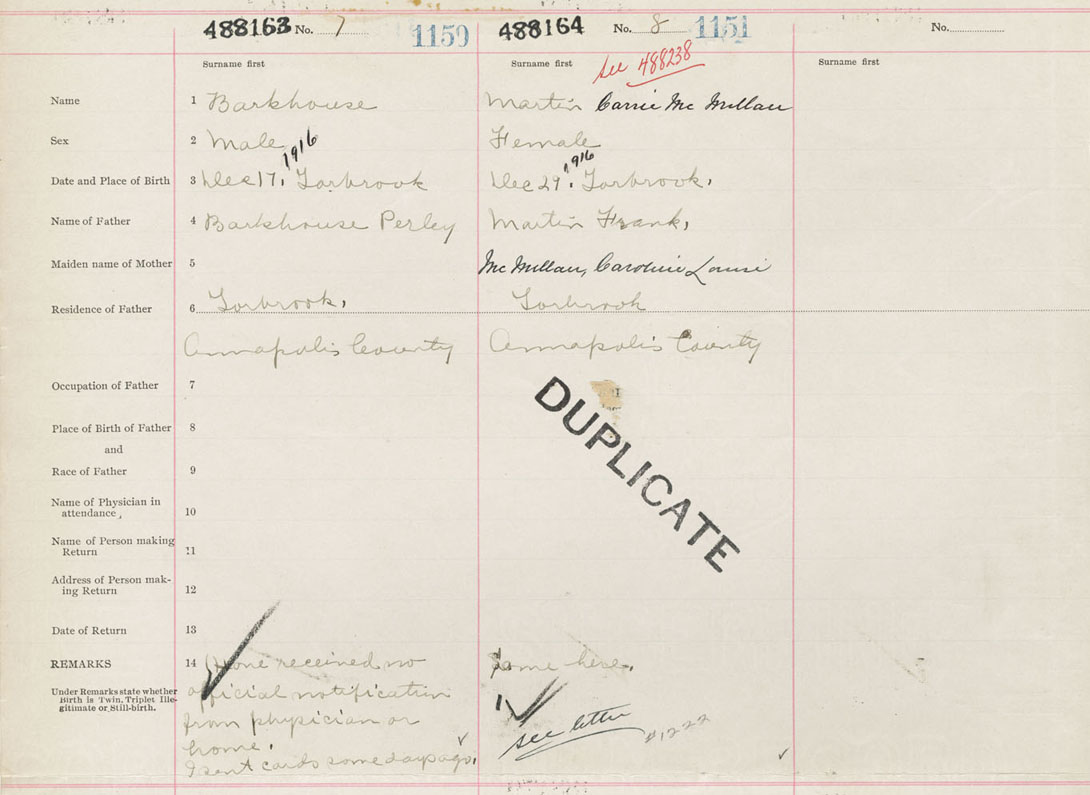 488163 No. 7 1150 488164 No. 8 1151 No.
Surname first Surname first see 488238 Surname first
Name 1 Barkhouse Martin Carrie McMillan
Sex 2 Male Female
1916 1916
Date and Place of Birth 3 Dec 17, Torbrook Dec 29, Torbrook,
Name of Father 4 Barkhouse Perley Martin Frank,
Maiden name of Mother 5 McMillan, Caroline Louise
Residence of Father 6 Torbrook, Torbrook
Annapolis County Annapolis County
Occupation of Father 7
DUPLICATE
Place of Birth of Father 8
and
Race of Father 9
Name of Physician in
attendance, 10
Name of Person making
Return 11
Address of Person mak-
ing Return 12
Date of Return 13
REMARKS 14 Have received no Same here.
Under Remarks state whether
Birth is Twin, Triplet Ille-
gitimate or Still-birth.
official notification
from physician or see letter #1222
home.
I sent cards some days ago.